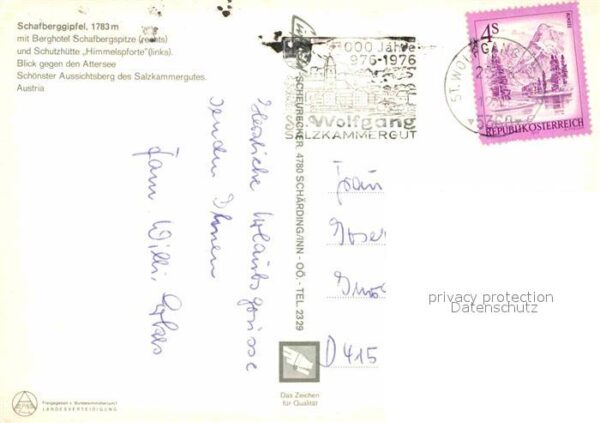 Schafberggipfel, 1783 m
mit Berghotel Schafbergspitze (rechts)
und Schutzhütte „Himmelspforte“(links).
Blick gegen den Attersee
Schönster Aussichtsberg des Salzkammergutes.
Austria
Herzliche Urlaubsgrüsse
senden Ihnen
Fam. Willi
SCHEURECKER, 4780 SCHÄRDING/INN - OÖ. - TEL 2329
1000 Jahre
976-1976
St. Wolfgang
SALZKAMMERGUT
ST. WOLFGANG
5360
4S
REPUBLIK ÖSTERREICH
Frau
D 415
privacy protection
Datenschutz
Das Zeichen
für Qualität
Freigegeben v. Bundesministerium f.
LANDESVERTEIDIGUNG